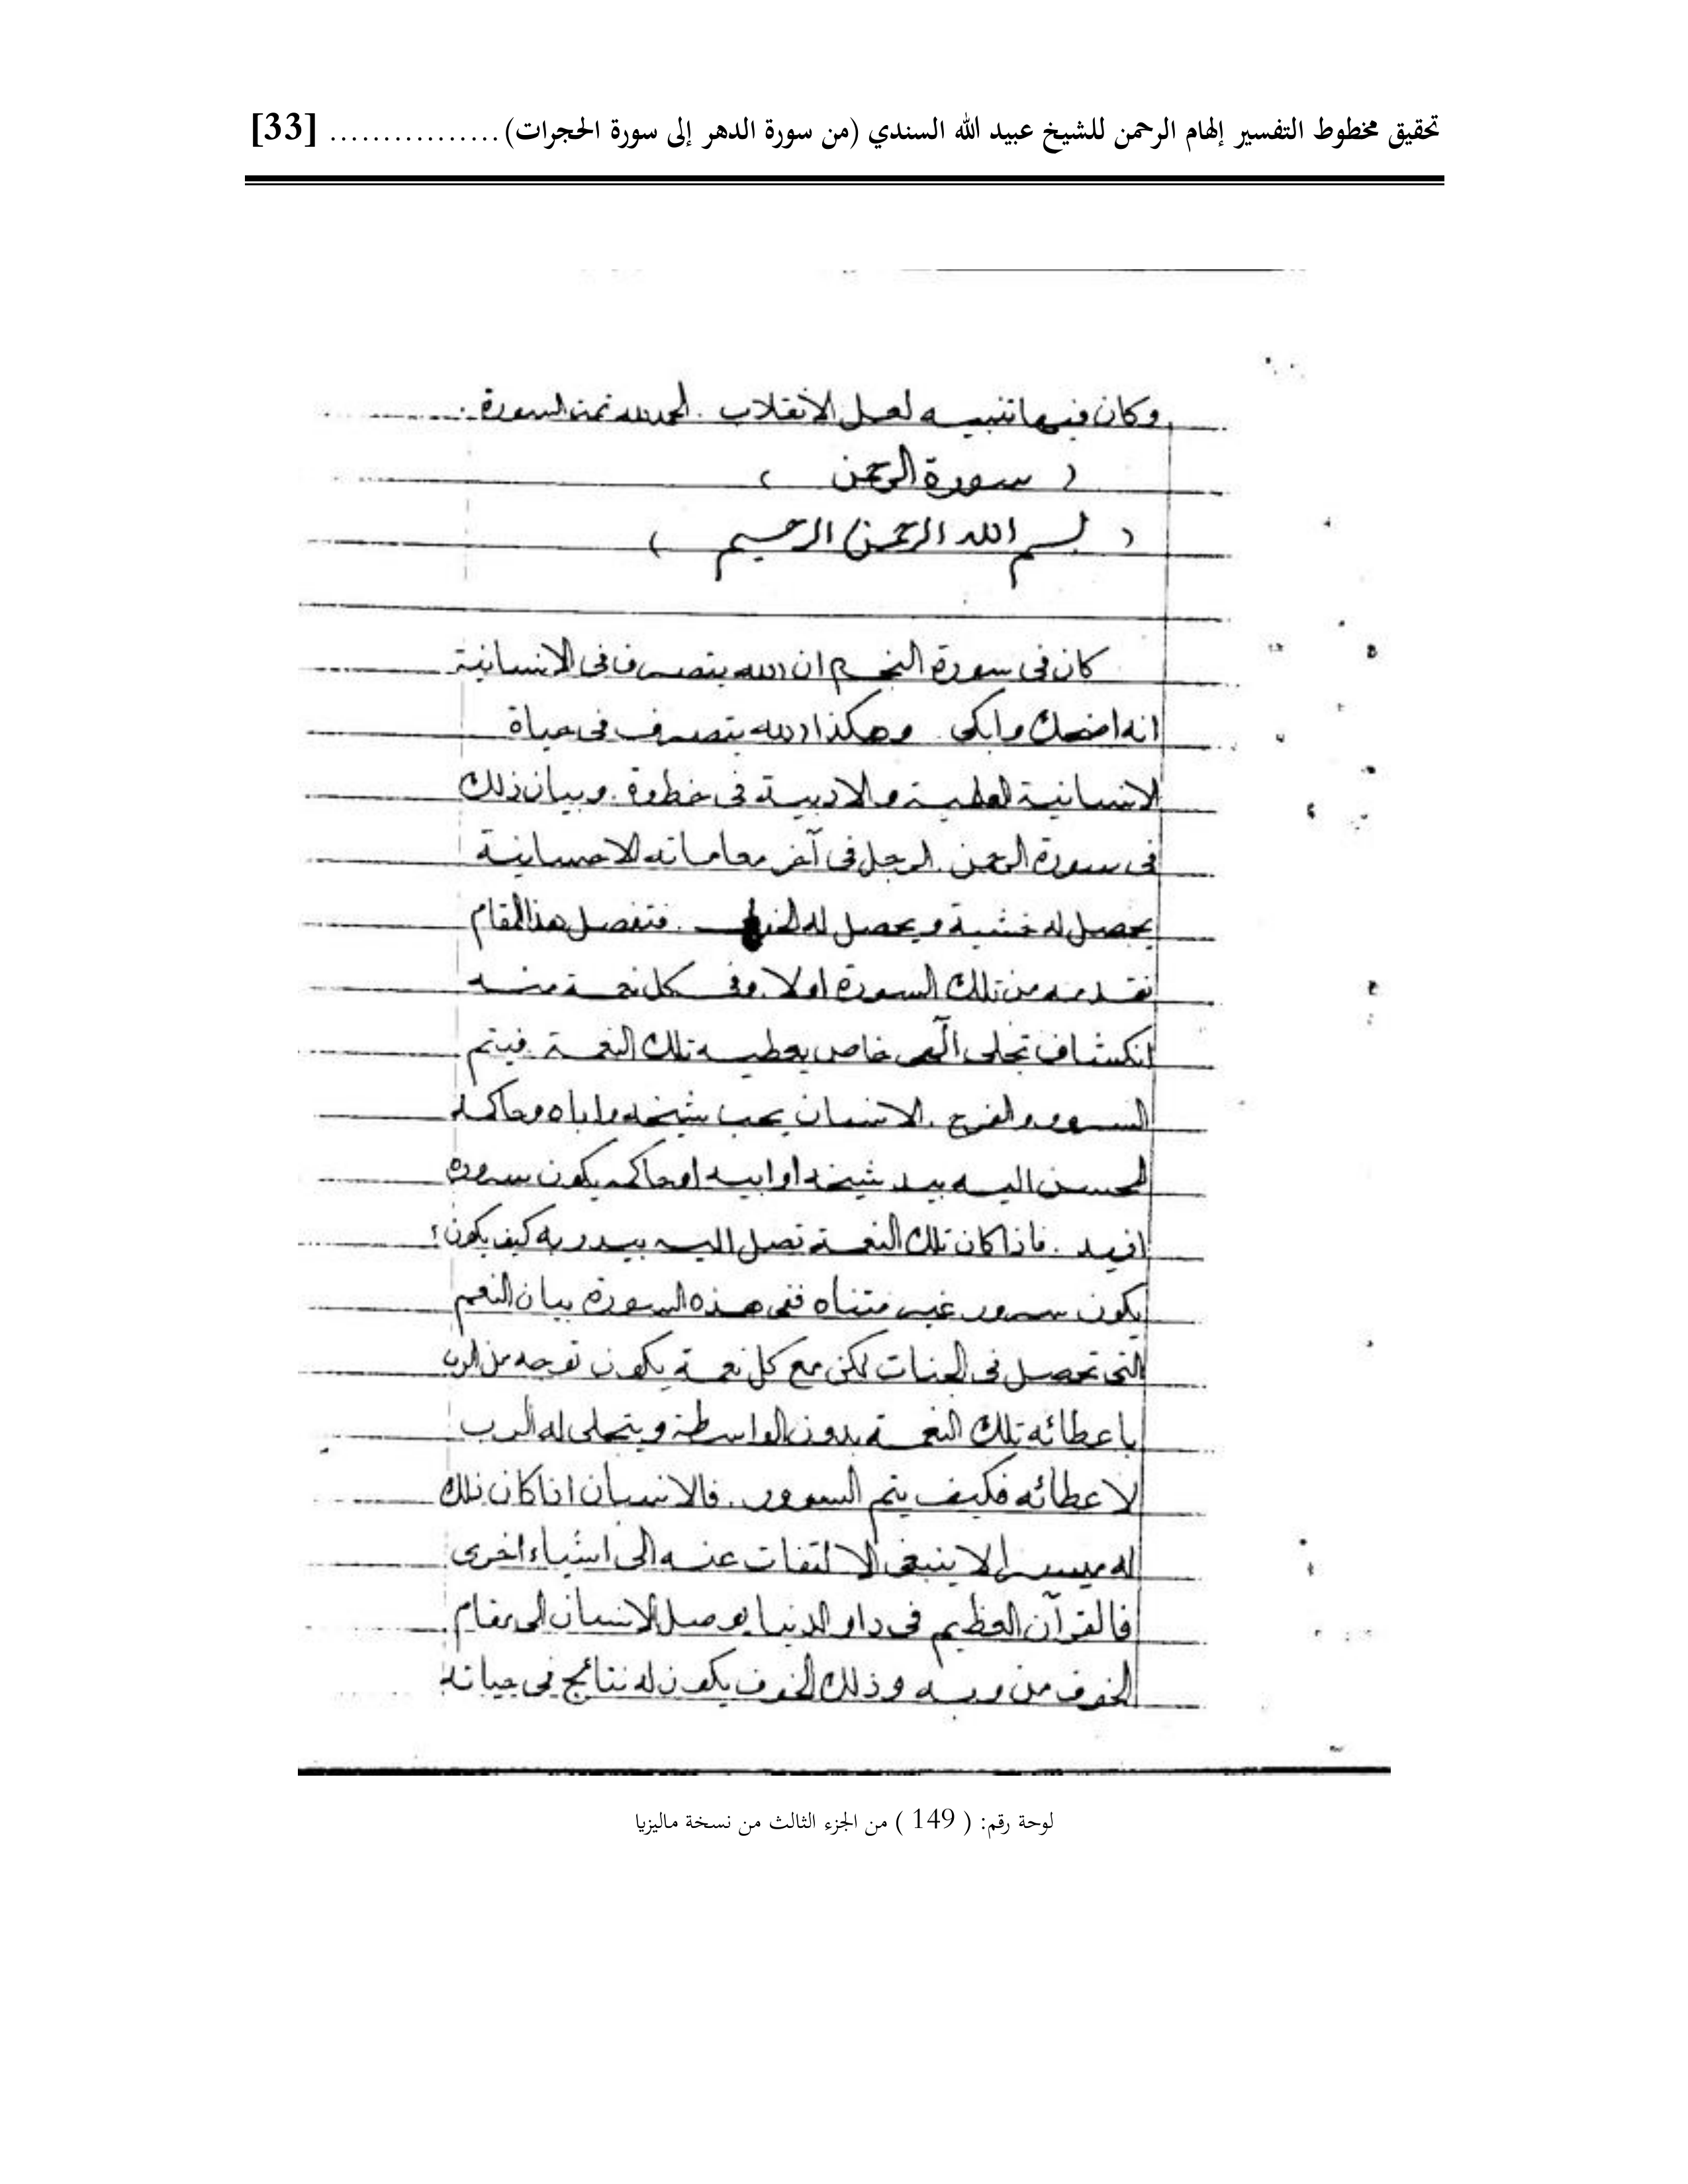 تحقيق مخطوط التفسير إلهام الرحمن للشيخ عبيد الله السندي (من سورة الدهر إلى سورة الحجرات)................ [33]
وكان فيها تنبيه لعمل الانقلاب . الحمد لله تمت السورة .
( سورة الرحمن )
( بسم الله الرحمن الرحيم )
كان فى سورة النجم ان الله يتصرف فى الانسانية
انه اضحك وابكى . وهكذا الله يتصرف فى حياة
الانسانية العلمية والادبية فى خطوة . وبيان ذلك
فى سورة الرحمن . الرجل فى آخر مقاماته الاحسانية
يحصل له خشية ويحصل له . فتفصل هذا المقام
من تلك السورة اولا . وفى كل نعمة منه
انكشاف تجلى الٓهى خاص يعطيه تلك النعمة . فيتم
السرور والفرح . الانسان يحب شيخه واباه وحاكمه
المحسن اليه بيد شيخه او ابيه او حاكمه يكون سروره
ازيد . فاذا كان تلك النعمة تصل اليه بيد ربه كيف يكون ؛
يكون سرور غير متناه ففى هذه السورة بيان النعم
التى تحصل فى الجنات لكن مع كل نعمة يكون توجه من الرب
باعطائه تلك النعمة بدون الواسطة ويتجلى له الرب
لاعطائه فكيف يتم السرور . فالانسان اذا كان ذلك
له ميسرا لا ينبغى الالتفات عنه الى اشياء اخرى
فالقرآن العظيم فى دار الدنيا يوصل الانسان الى مقام
الخوف من ربه وذلك الخوف يكون له نتائج فى حياته
لوحة رقم: ( 149 ) من الجزء الثالث من نسخة ماليزيا